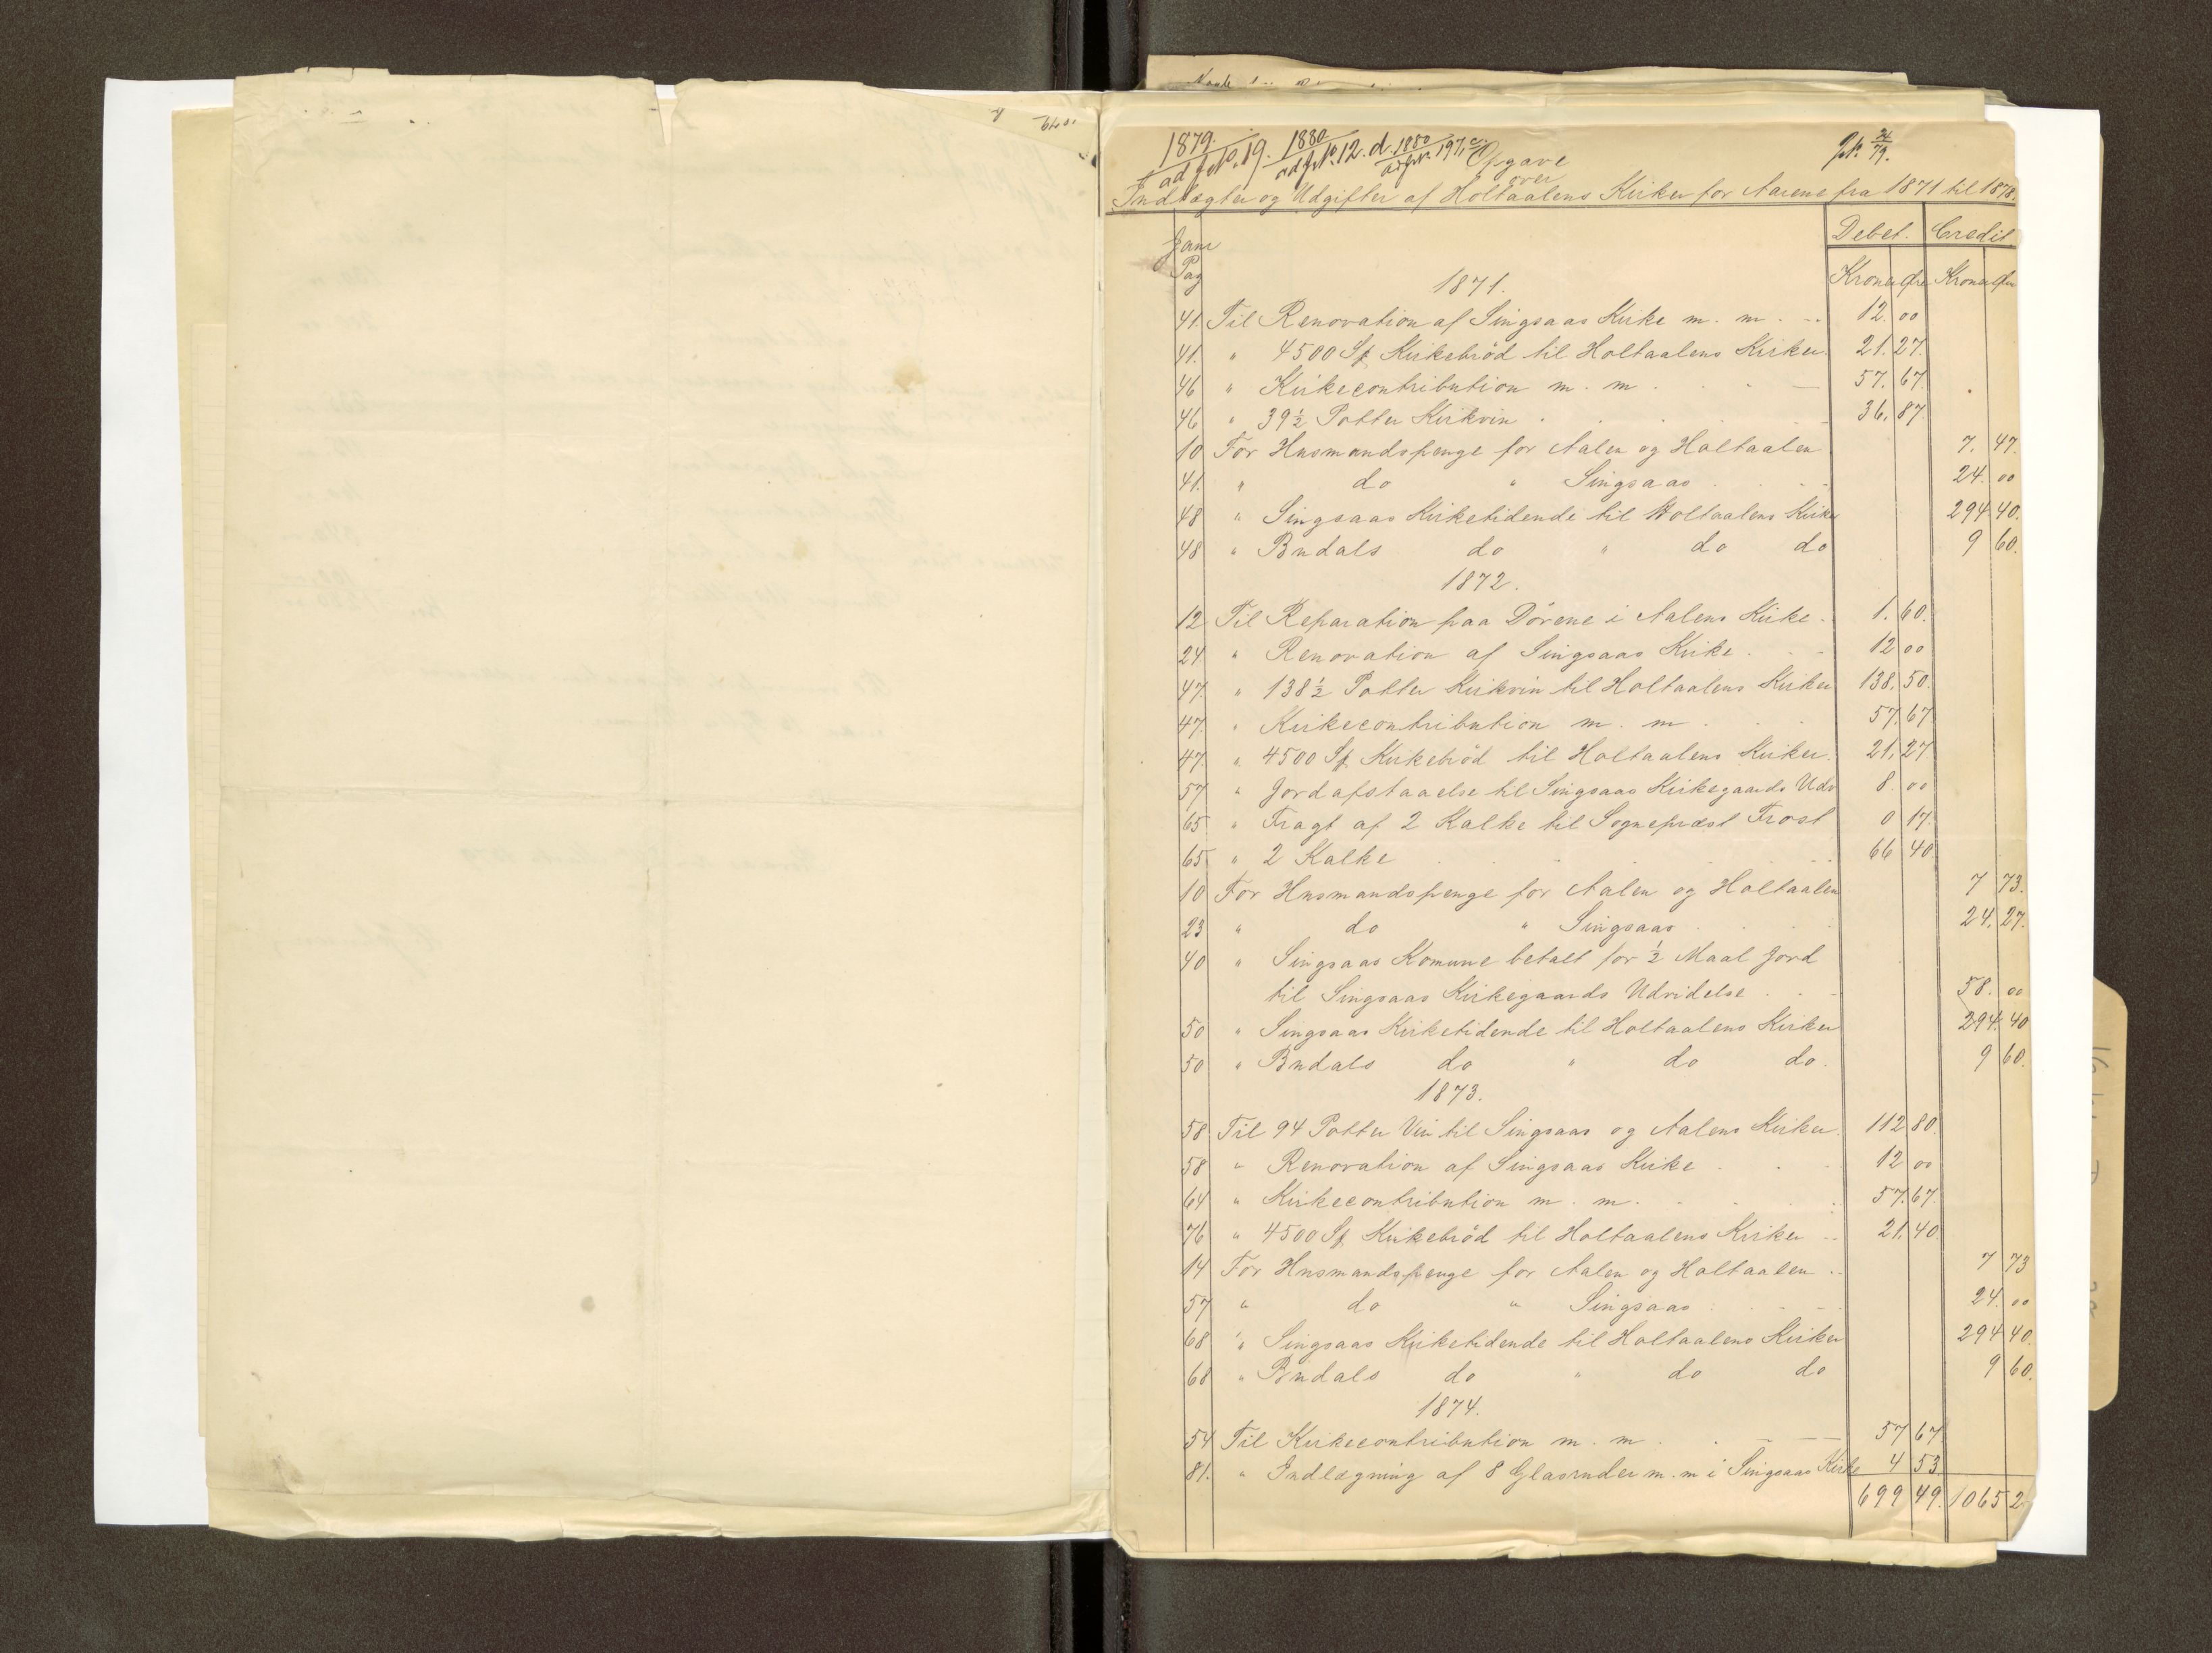 1879. 1880 1880
ad No. 19. ad No. 12. d. ad No. 197, c
Opgave
over
Indtægter og Udgifter af Holtaalens Kirker for Aarene fra 1871 til 1878.
Debet. Credit
Pag Kroner Øre Kroner Øre
1871.
41. Til Renovation af Singsaas Kirke m. m. 12. 00
41. " 4500 St Kirkebröd til Holtaalens Kirker. 21. 27.
46 " Kirkecontribution m. m. 57. 67.
46 " 39½ Potter Kirkvin 36. 87.
10 For Husmandspenge for Aalen og Holtaalen 7. 47.
41. " do " Singsaas 24. 00
48 " Singsaas Kirketidende til Holtaalens Kirker 294 40.
48 " Budals do " do do 9 60.
1872.
12 Til Reparation paa Dörene i Aalens Kirke 1. 60.
24 " Renovation af Singsaas Kirke 12 00
47. " 138½ Potter Kirkvin til Holtaalens Kirker 138. 50.
47. " Kirkecontribution m. m. 57. 67
47. " 4500 St Kirkebröd til Holtaalens Kirker. 21. 27
57 " Jordafstaaelse til Singsaas Kirkegaards Udv 8. 00
65 " Fragt af 2 Kalke til Sognepræst Frost 0 17.
65 " 2 Kalke 66 40
10 For Husmandspenge for Aalen og Holtaalen 7 73.
23 " do " Singsaas 24. 27.
40 " Singsaas Komune betalt for ½ Maal Jord
til Singsaas Kirkegaards Udvidelse 58. 00
50 " Singsaas Kirketidende til Holtaalens Kirker 294. 40
50 " Budals do " do do. 9 60.
1873.
58 Til 94 Potter Vin til Singsaas og Aalens Kirker. 112 80.
58 " Renovation af Singsaas Kirke 12 00
64 " Kirkecontribution m. m. 57. 67.
76 " 4500 St Kirkebröd til Holtaalens Kirker 21. 40
14 For Husmandspenge for Aalen og Holtaalen 7 73
57 " do " Singsaas 24. 00
68 " Singsaas Kirketidende til Holtaalens Kirker 294 40.
68 " Budals do " do do 9 60.
1874.
54 Til Kirkecontribution m. m. 57 67
81. " Indlægning af 8 Glasruder m. m i Singsaas Kirke 4 53
699 49. 1065 2